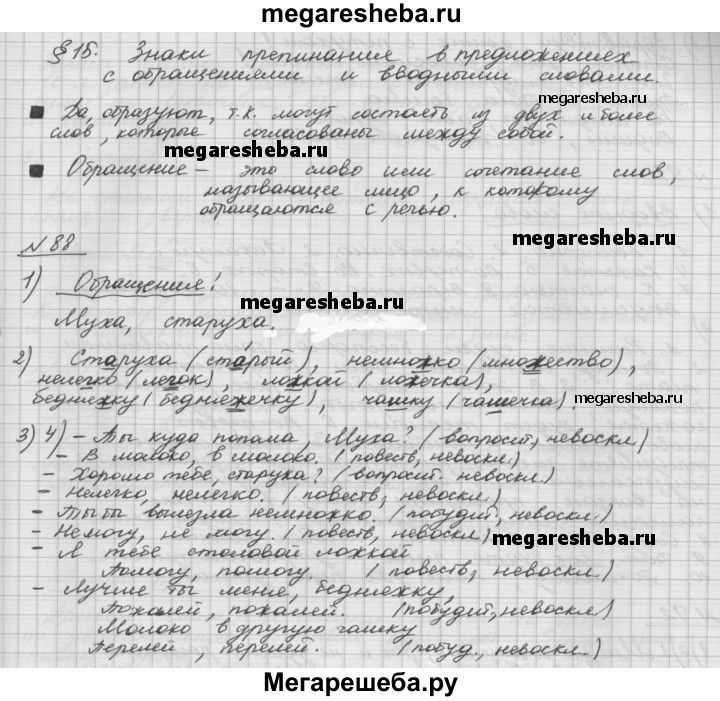 megaresheba.ru
§15. Знаки препинания в предложениях
с обращениями и вводными словами.
megaresheba.ru
■ Да, образуют, т.к. могут состоять из двух и более
слов, которые согласованы между собой.
megaresheba.ru
■ Обращение – это слово или сочетание слов,
называющее лицо, к которому
обращаются с речью.
megaresheba.ru
N 88
1) Обращения!
megaresheba.ru
Муха, старуха.
2) Старуха (ста́рый), немножко (множество),
нелегко (легок), ложкой (ложечка),
бедняжку (бедняжечку), чашку (чашечка).
megaresheba.ru
3) 4) – Ты куда попала, Муха? (вопросит, невоскл.)
– В молоко, в молоко. (повеств, невоскл.)
– Хорошо тебе, старуха? (вопросит. невоскл.)
– Нелегко, нелегко. (повеств, невоскл.)
– Ты бы вылезла немножко. (побудит, невоскл.)
– Не могу, не могу. (повеств, невоскл.)
megaresheba.ru
– Я тебе столовой ложкой
Помогу, помогу. (повеств, невоскл.)
– Лучше ты меня, бедняжку,
Пожалей, пожалей. (побудит, невоскл.)
Молоко в другую чашку
Перелей, перелей. (побуд., невоскл.)
Мегарешеба.ру